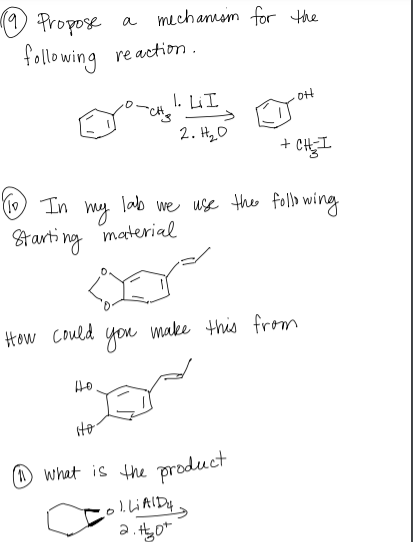 9 Propose a mechanism for the
following reaction.
O-CH3 1. LiI OH
2. H2O
+ CH3-I
10 In my lab we use the following
Starting material
O
O
How could you make this from
HO
HO
11 What is the product
O 1. LiAlD4
2. H3O+